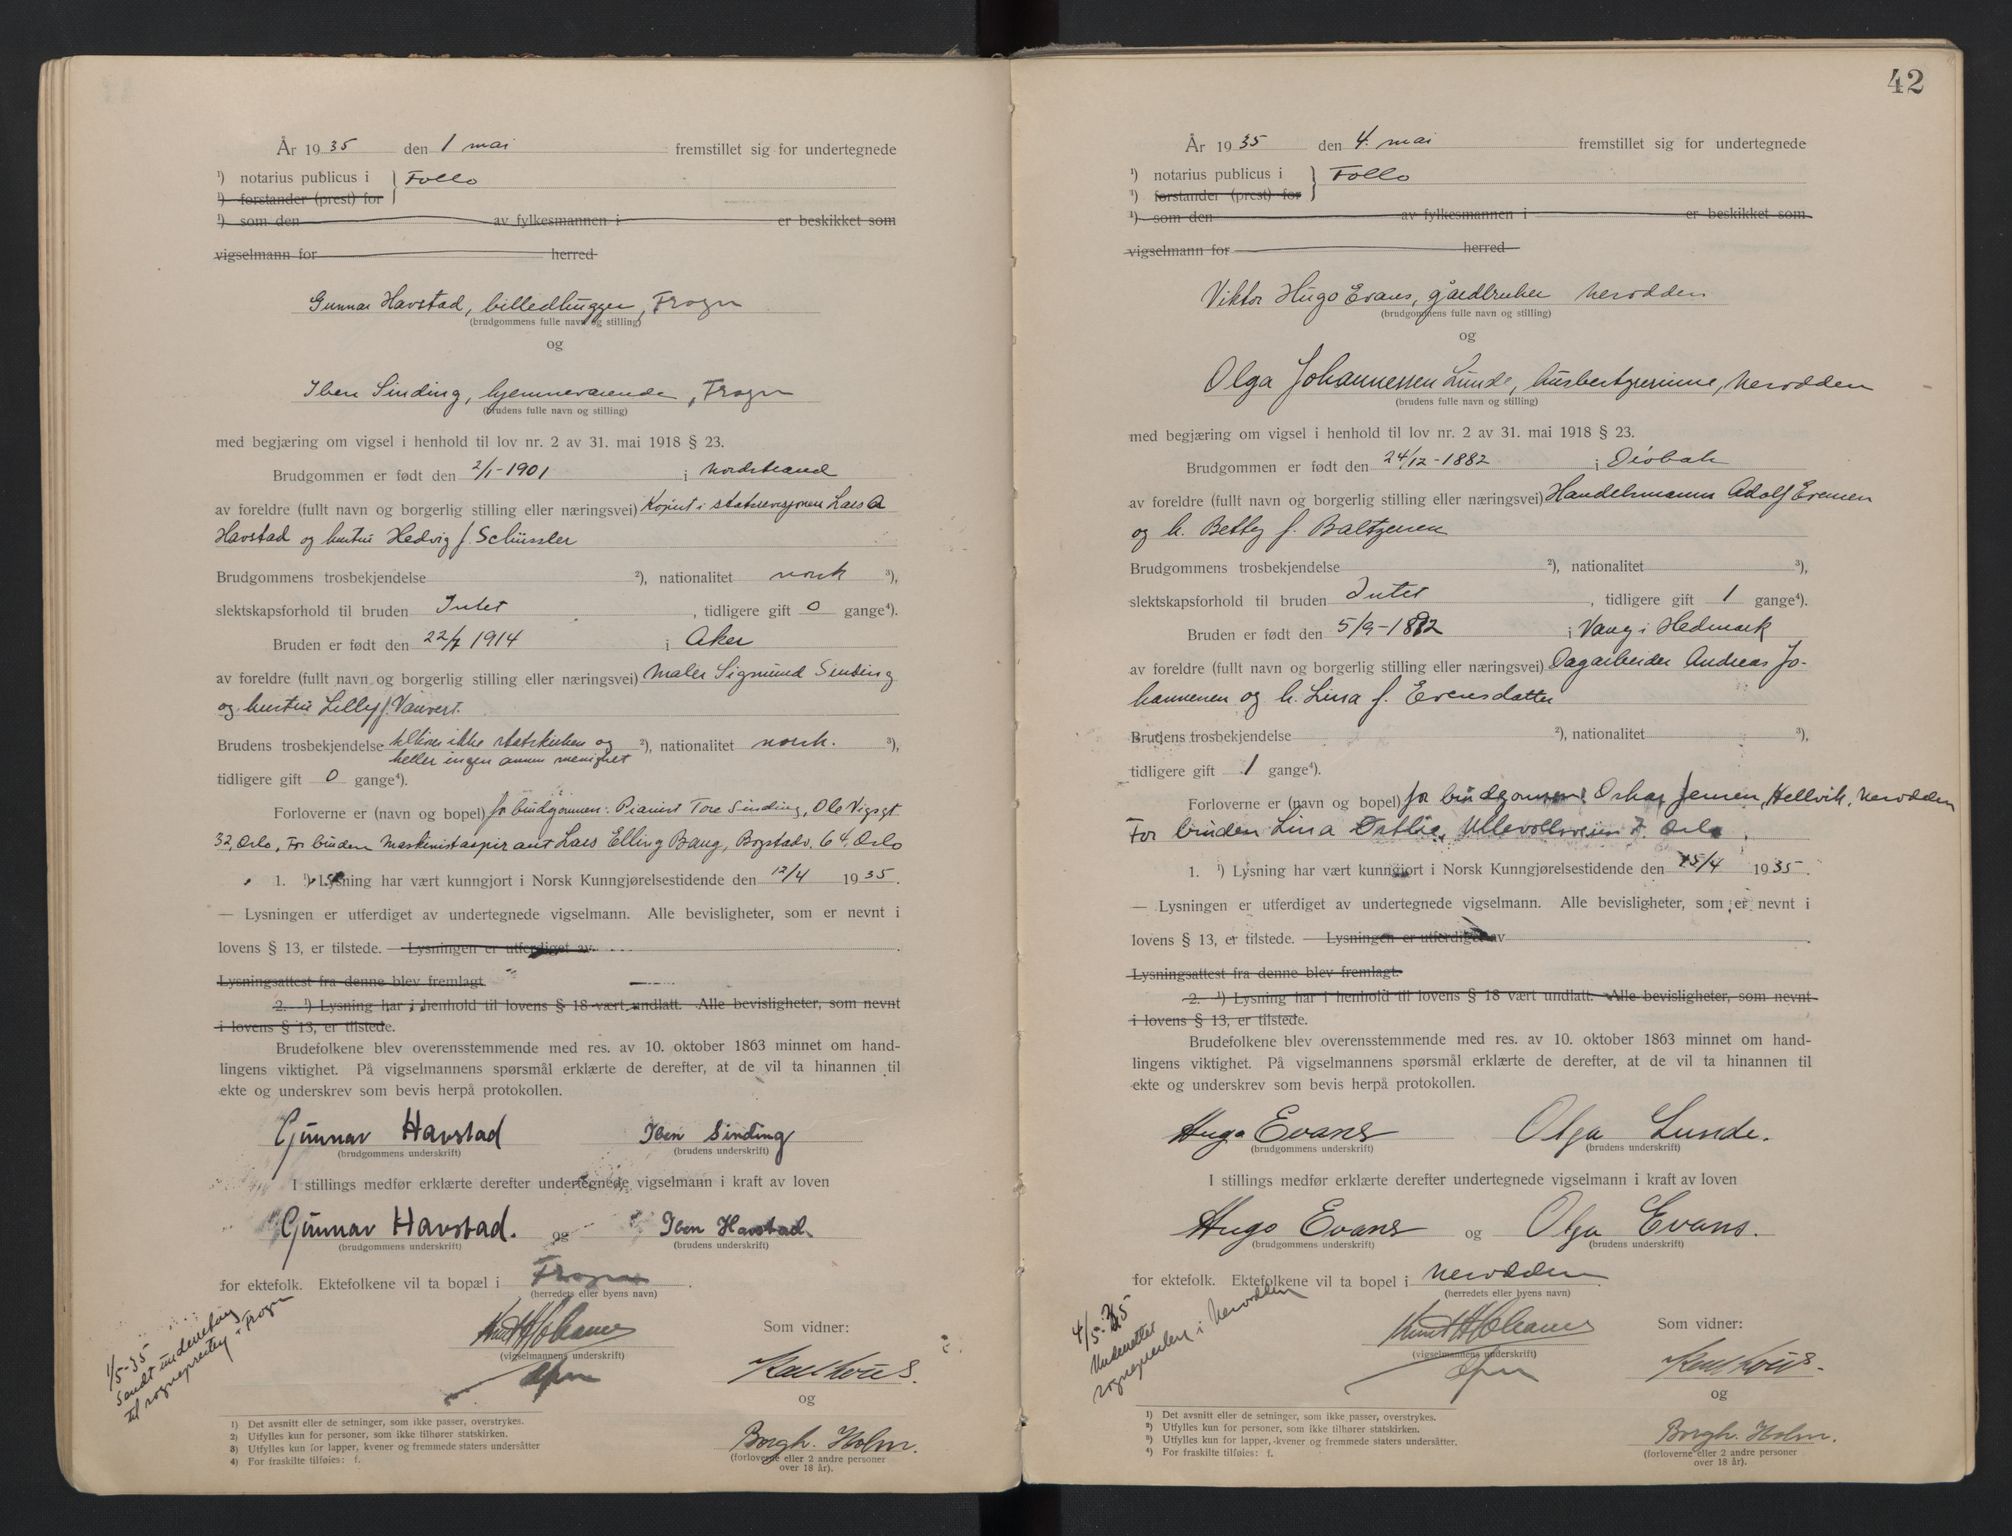 År 1935 den 1 mai fremstillet sig for undertegnede
¹) notarius publicus i } Follo
¹) forstander (prest) for
¹) som den av fylkesmannen i er beskikket som
vigselmann for herred
Gunnar Havstad, billedhugger, Frogn
(brudgommens fulle navn og stilling)
og
Iben Sinding, hjemmeværende, Frogn
(brudens fulle navn og stilling)
med begjæring om vigsel i henhold til lov nr. 2 av 31. mai 1918 § 23.
Brudgommen er født den 2/1-1901 i Nordstrand
av foreldre (fullt navn og borgerlig stilling eller næringsvei) Kopist i statsrevisjonen Lars A
Havstad og hustru Hedvig f. Schüssler
Brudgommens trosbekjendelse ²), nationalitet norsk ³),
slektskapsforhold til bruden Intet, tidligere gift 0 gange⁴).
Bruden er født den 22/7 1914 i Aker
av foreldre (fullt navn og borgerlig stilling eller næringsvei) Maler Sigmund Sinding
og hustru Lilly f. Vanvert.
Brudens trosbekjendelse tilhører ikke statskirken og ²), nationalitet norsk. ³),
heller ingen annen menighet
tidligere gift 0 gange⁴).
Forloverne er (navn og bopel) for brudgommen: Pianist Tore Sinding, Ole Vigsgt.
32, Oslo, For bruden Maskinistaspirant Lars Elling Bang, Bogstadv. 64, Oslo
1. ¹) Lysning har vært kunngjort i Norsk Kunngjørelsestidende den 12/4 1935.
— Lysningen er utferdiget av undertegnede vigselmann. Alle bevisligheter, som er nevnt i
lovens § 13, er tilstede. — Lysningen er utferdiget av
Lysningsattest fra denne blev fremlagt
2. ¹) Lysning har i henhold til lovens § 18 vært undlatt. Alle bevisligheter, som nevnt
i lovens § 13, er tilstede.
Brudefolkene blev overensstemmende med res. av 10. oktober 1863 minnet om hand-
lingens viktighet. På vigselmannens spørsmål erklærte de derefter, at de vil ta hinannen til
ekte og underskrev som bevis herpå protokollen.
Gunnar Havstad Iben Sinding
(brudgommens underskrift) (brudens underskrift)
I stillings medfør erklærte derefter undertegnede vigselmann i kraft av loven
Gunnar Havstad. og Iben Havstad.
(brudgommens underskrift) (brudens underskrift)
for ektefolk. Ektefolkene vil ta bopæl i Frogn
(herredets eller byens navn)
(vigselmannens underskrift)
Som vidner:
og
Borgh. Holm.
(forloverne eller 2 andre personer
over 18 år).
1/5-35
Sendt underretning
til sognepresten i Frogn
1) Det avsnitt eller de setninger, som ikke passer, overstrykes.
2) Utfylles kun for personer, som ikke tilhører statskirken.
3) Utfylles kun for lapper, kvener og fremmede staters undersåtter
4) For fraskilte tilføies: f.
42
År 1935 den 4. mai fremstillet sig for undertegnede
¹) notarius publicus i } Follo
¹) forstander (prest) for
¹) som den av fylkesmannen i er beskikket som
vigselmann for herred
Viktor Hugo Evans, gårdbruker Nesodden
(brudgommens fulle navn og stilling)
og
Olga Johannessen Lunde, husbestyrerinne, Nesodden
(brudens fulle navn og stilling)
med begjæring om vigsel i henhold til lov nr. 2 av 31. mai 1918 § 23.
Brudgommen er født den 24/12-1882 i Drøbak
av foreldre (fullt navn og borgerlig stilling eller næringsvei) Handelsmann Adolf Evensen
og h. Betty f. Baltzersen
Brudgommens trosbekjendelse ²), nationalitet ³),
slektskapsforhold til bruden Intet, tidligere gift 1 gange⁴).
Bruden er født den 5/9-1882 i Vang i Hedmark
av foreldre (fullt navn og borgerlig stilling eller næringsvei) Dagarbeider Andreas Jo-
hannesen og h. Lina f. Evensdatter
Brudens trosbekjendelse ²), nationalitet ³),
tidligere gift 1 gange⁴).
Forloverne er (navn og bopel) for brudgommen: Oskar Jensen, Hellvik, Nesodden
For bruden Lina Østlie, Ullevollsveien 7. Oslo.
1. ¹) Lysning har vært kunngjort i Norsk Kunngjørelsestidende den 15/4 1935.
— Lysningen er utferdiget av undertegnede vigselmann. Alle bevisligheter, som er nevnt i
lovens § 13, er tilstede. — Lysningen er utferdiget av
Lysningsattest fra denne blev fremlagt.
2. ¹) Lysning har i henhold til lovens § 18 vært undlatt. Alle bevisligheter, som nevnt
i lovens § 13, er tilstede.
Brudefolkene blev overensstemmende med res. av 10. oktober 1863 minnet om hand-
lingens viktighet. På vigselmannens spørsmål erklærte de derefter, at de vil ta hinannen til
ekte og underskrev som bevis herpå protokollen.
Hugo Evans Olga Lunde.
(brudgommens underskrift) (brudens underskrift)
I stillings medfør erklærte derefter undertegnede vigselmann i kraft av loven
Hugo Evans og Olga Evans.
(brudgommens underskrift) (brudens underskrift)
for ektefolk. Ektefolkene vil ta bopel i Nesodden
(herredets eller byens navn)
(vigselmannens underskrift)
Som vidner:
og
Borgh. Holm.
(forloverne eller 2 andre personer
over 18 år).
4/5-35
Underrettet
sognepresten i Nesodden
1) Det avsnitt eller de setninger, som ikke passer, overstrykes.
2) Utfylles kun for personer, som ikke tilhører statskirken.
3) Utfylles kun for lapper, kvener og fremmede staters undersåtter.
4) For fraskilte tilføies: f.